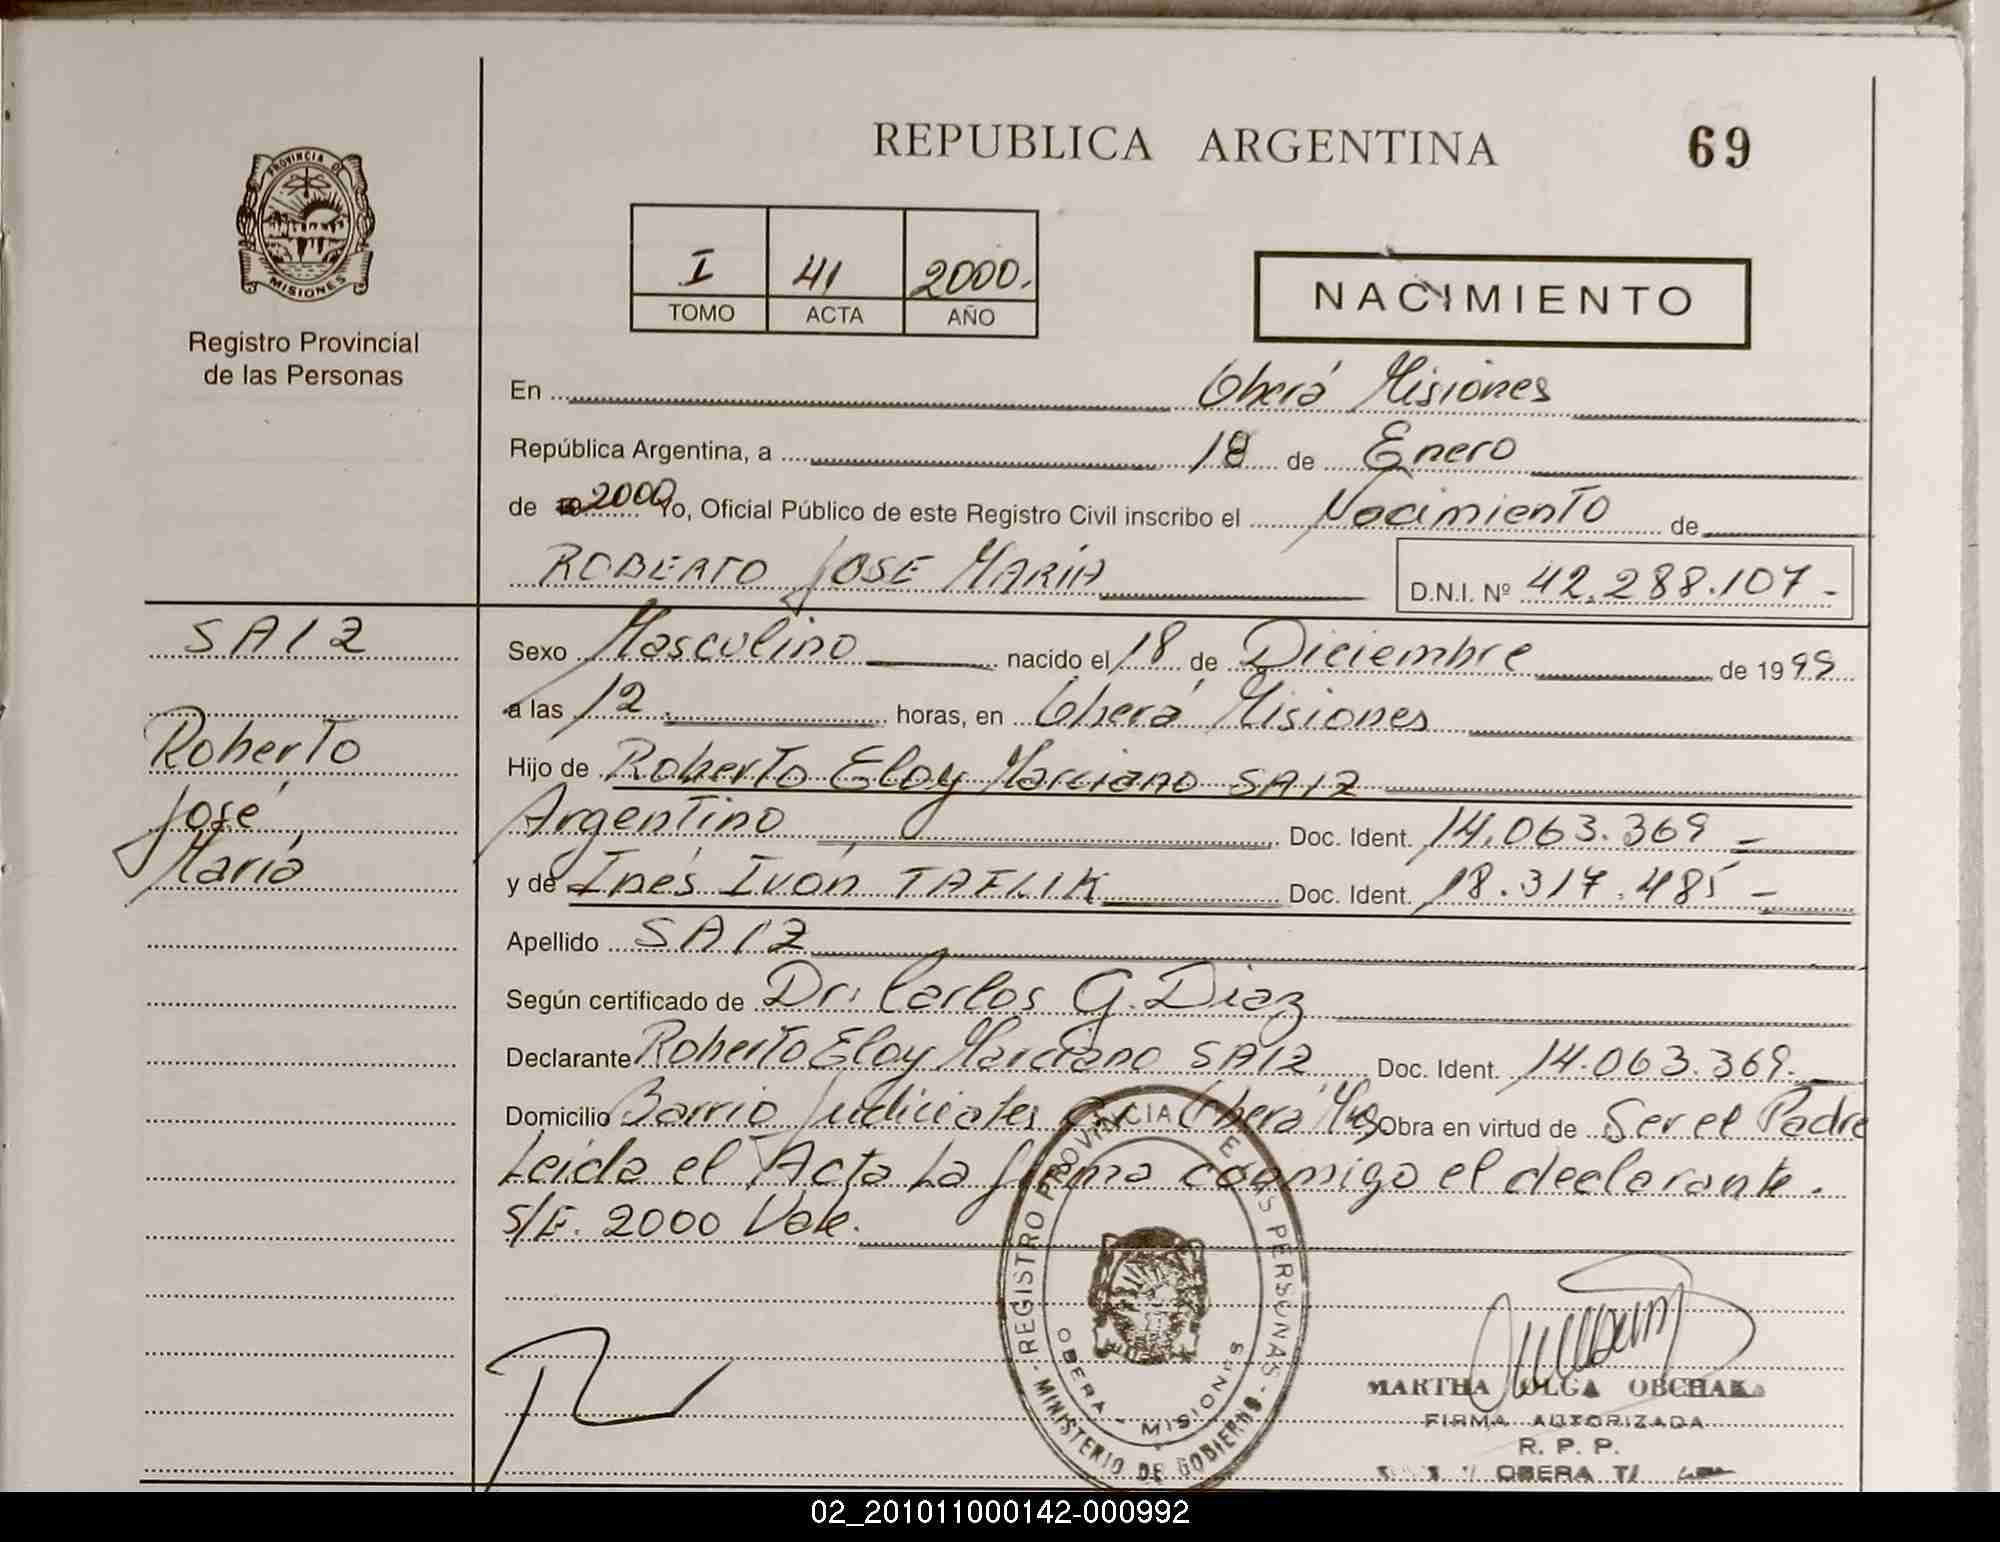 REPUBLICA ARGENTINA
69
PROVINCIA DE
MISIONES
Registro Provincial
de las Personas
I 41 2000.
TOMO ACTA AÑO
NACIMIENTO
En Oberá Misiones
República Argentina, a 18 de Enero
de 2000 Yo, Oficial Público de este Registro Civil inscribo el Nacimiento de
ROBERTO JOSE MARIA
D.N.I. Nº 42.288.107-
SAIZ
Roberto
José
María
Sexo Masculino nacido el 18 de Diciembre de 1999
a las 12 horas, en Oberá Misiones
Hijo de Roberto Eloy Marciano SAIZ
Argentino Doc. Ident. 14.063.369-
y de Inés Ivón TAFLIK Doc. Ident. 18.317.485-
Apellido SAIZ
Según certificado de Dr: Carlos G. Diaz
Declarante Roberto Eloy Marciano SAIZ Doc. Ident. 14.063.369.
Domicilio Barrio Judiciales Oberá Obra en virtud de Ser el Padre
Leida el Acta La firma conmigo el declarante.
S/E. 2000 Vale.
REGISTRO PROVINCIAL DE LAS PERSONAS - MINISTERIO DE GOBIERNO -
OBERA - MISIONES
MARTHA OLGA OBCHAK
FIRMA AUTORIZADA
R. P. P.
OBERA
02_201011000142-000992